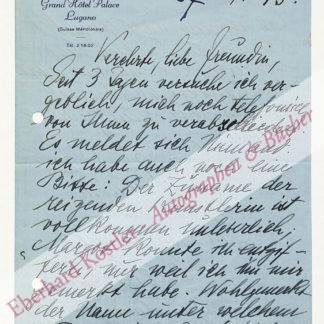 Grand Hôtel Palace
Lugano
(Suisse Méridionale)
Tél. 2 18 02
Verehrte, liebe Freundin,
Seit 3 Tagen versuche ich ver-
geblich, mich noch telefonisch
von Ihnen zu verabschieden.
Es meldet sich Niemand.
ich habe auch noch eine
Bitte: Der Zuname der
reizenden Künstlerin ist
vollkommen unleserlich;
"Margot" konnte ich entzif-
fern mir weil ich ihn mir
gemerkt habe. Wohlgemerkt
der Name unter welchem
Eberhard Köstler Autographen & Bücher